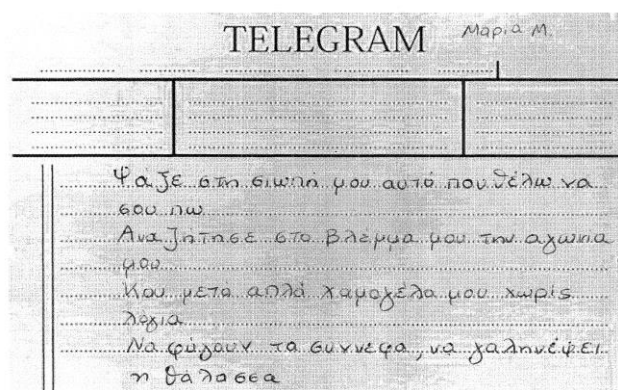 TELEGRAM
Μαρία Μ.
Ψαξε στη σιωπή μου αυτό που θέλω να
σου πω
Αναζήτησε στο βλέμμα μου την αγωνια
μου
Και μετα απλά χαμογέλα μου χωρίς
λόγια
Να φύγουν τα συννεφα, να γαληνέψει
η θάλασσα